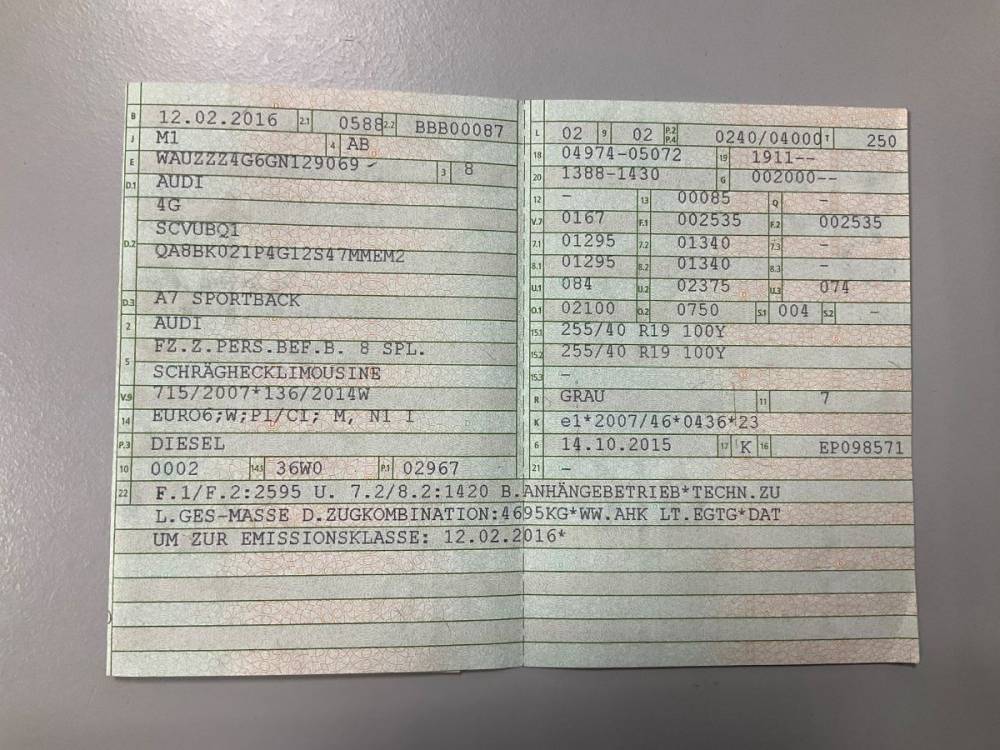 B 12.02.2016 2.1 0588 2.2 BBB00087
J M1 4 AB
E WAUZZZ4G6GN129069 - 3 8
D.1 AUDI
4G
D.2 SCVUBQ1
QA8BK021P4G12S47MMEM2
D.3 A7 SPORTBACK
2 AUDI
5 FZ.Z.PERS.BEF.B. 8 SPL.
SCHRÄGHECKLIMOUSINE
V.9 715/2007*136/2014W
14 EURO6;W;P1/CI; M, N1 I
P.3 DIESEL
10 0002 14.1 36W0 P.1 02967
L 02 9 02 P.2 P.4 0240/04000 T 250
18 04974-05072 19 1911--
20 1388-1430 G 002000--
12 - 13 00085 Q -
V.7 0167 F.1 002535 F.2 002535
7.1 01295 7.2 01340 7.3 -
8.1 01295 8.2 01340 8.3 -
U.1 084 U.2 02375 U.3 074
O.1 02100 O.2 0750 S.1 004 S.2 -
15.1 255/40 R19 100Y
15.2 255/40 R19 100Y
15.3 -
R GRAU 11 7
K e1*2007/46*0436*23
6 14.10.2015 17 K 16 EP098571
21 -
22 F.1/F.2:2595 U. 7.2/8.2:1420 B.ANHÄNGEBETRIEB*TECHN.ZU
L.GES-MASSE D.ZUGKOMBINATION:4695KG*WW.AHK LT.EGTG*DAT
UM ZUR EMISSIONSKLASSE: 12.02.2016*